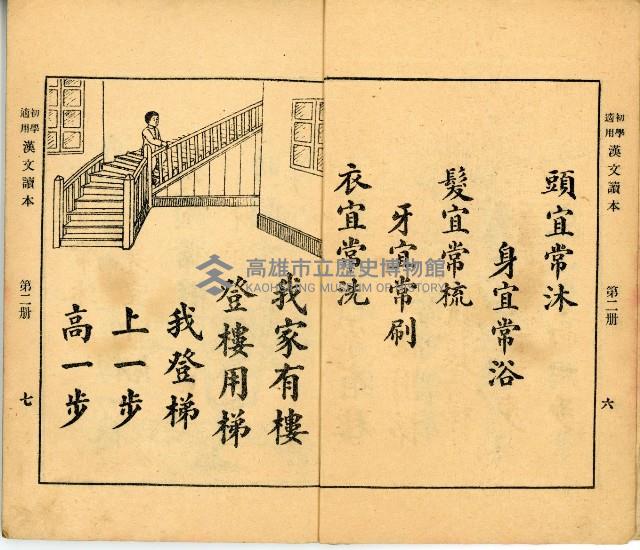 初學適用 漢文讀本 第二册 六
頭宜常沐
身宜常浴
髮宜常梳
牙宜常刷
衣宜常洗
我家有樓
登樓用梯
我登梯
上一步
高一步
初學適用 漢文讀本 第二册 七
高雄市立歷史博物館
KAOHSIUNG MUSEUM OF HISTORY